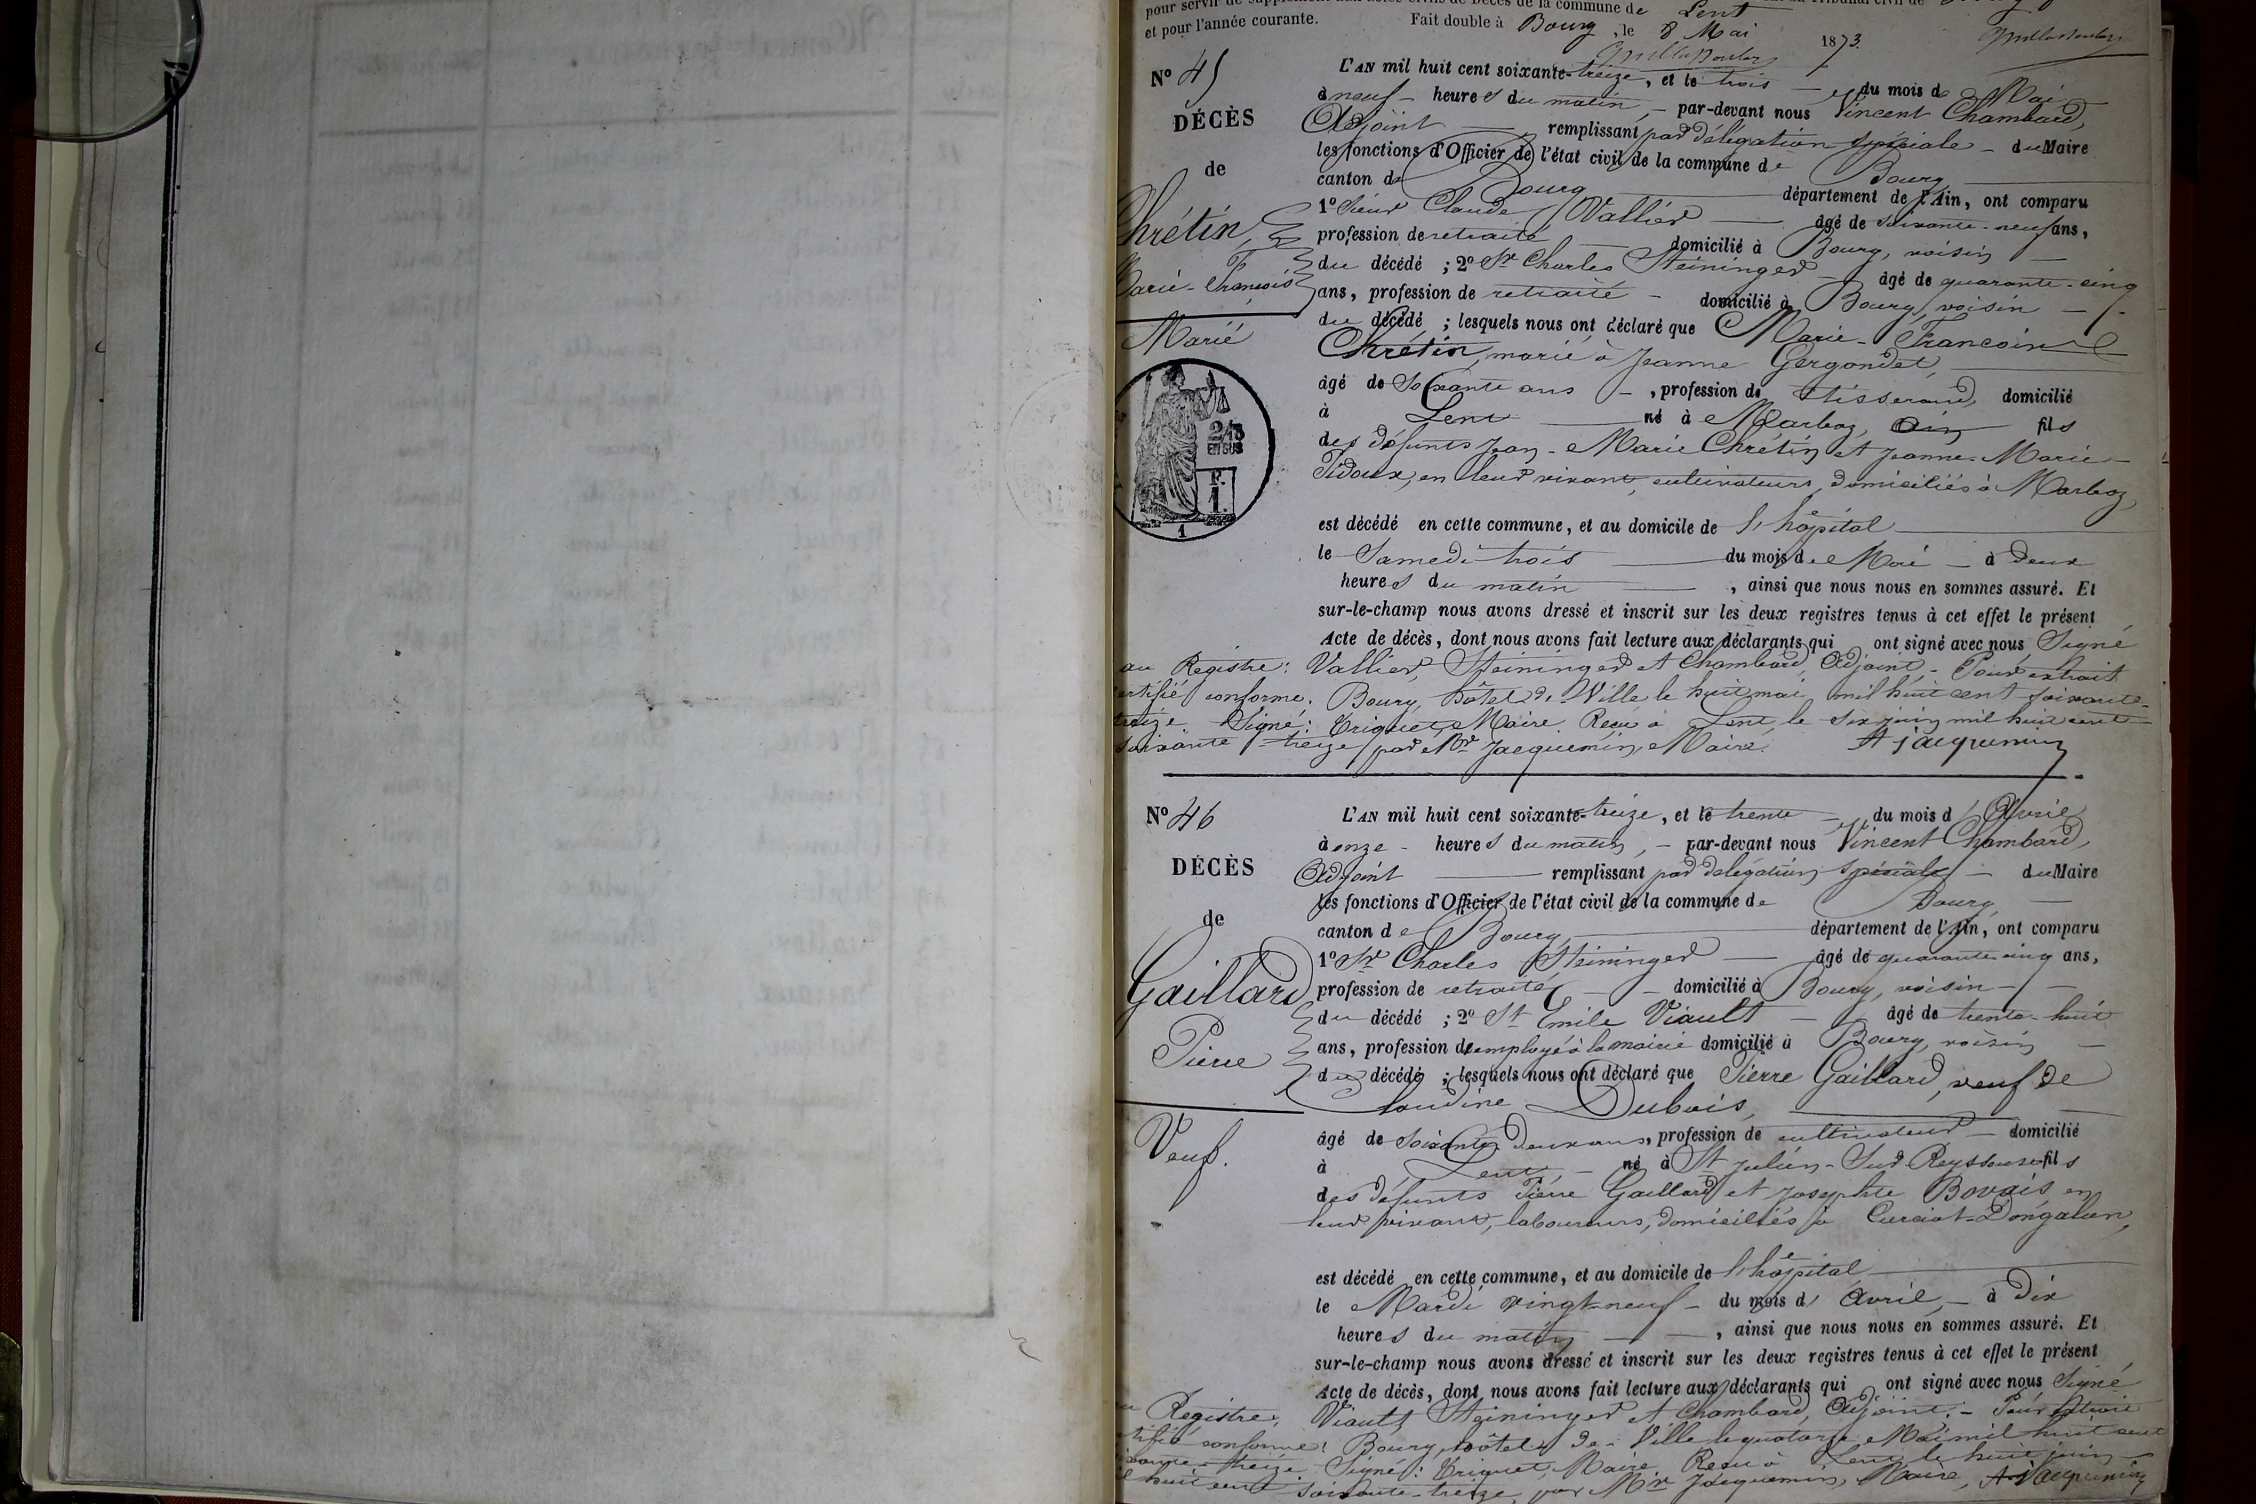 et pour l'année courante. Fait double à Bourg, le 8 Mai 1873.
N° 45
DÉCÈS
de
Chrétin,
Marie-François
Marié
2/10
EN SUS
F.
1.
1
L'AN mil huit cent soixante-treize, et le trois du mois de Mai
à neuf heures du matin, par-devant nous Vincent Chambard,
Adjoint remplissant par délégation spéciale du Maire
les fonctions d'Officier de l'état civil de la commune de Bourg
canton de Bourg département de l'Ain, ont comparu
1° Sieur Claude Vallier âgé de soixante-neuf ans,
profession de retraité domicilié à Bourg, voisin
du décédé ; 2° Sr Charles Steininger âgé de quarante-cinq
ans, profession de retraité domicilié à Bourg, voisin
du décédé ; lesquels nous ont déclaré que Marie-François
Chrétin, marié à Jeanne Gergondet,
âgé de Soixante ans, profession de tisserand, domicilié
à Lent né à Marboz, Ain fils
des défunts Jean-Marie Chrétin et Jeanne-Marie
Pidoux, en leur vivant, cultivateurs, domiciliés à Marboz,
est décédé en cette commune, et au domicile de l'hôpital
le Samedi trois du mois de Mai à Deux
heures du matin, ainsi que nous nous en sommes assuré. Et
sur-le-champ nous avons dressé et inscrit sur les deux registres tenus à cet effet le présent
Acte de décès, dont nous avons fait lecture aux déclarants qui ont signé avec nous Signé
au Registre: Vallier, Steininger et Chambard, Adjoint. Pour extrait
certifié conforme. Bourg, hôtel de Ville le huit mai mil huit cent soixante-
treize Signé: Maire Reçu à Lent, le six juin mil huit cent
soixante-treize par Mr Jacquemin, Maire. A Jacquemin
N° 46
DÉCÈS
de
Gaillard
Pierre
Veuf.
L'AN mil huit cent soixante-treize, et le trente du mois d'Avril
à onze heures du matin, par-devant nous Vincent Chambard,
Adjoint remplissant par délégation spéciale du Maire
les fonctions d'Officier de l'état civil de la commune de Bourg
canton de Bourg, département de l'Ain, ont comparu
1° Sr Charles Steininger âgé de quarante-cinq ans,
profession de retraité domicilié à Bourg, voisin
du décédé ; 2° Sr Emile Viault âgé de trente-huit
ans, profession de employé à la mairie domicilié à Bourg, voisin
du décédé ; lesquels nous ont déclaré que Pierre Gaillard, veuf de
Claudine Dubois,
âgé de soixante-deux ans, profession de cultivateur domicilié
à Lent, né à St Julien-Sur-Reyssouze fils
des défunts Pierre Gaillard et Josephte Bovais, en
leur vivant, laboureurs, domiciliés à Curciat-Dongalon,
est décédé en cette commune, et au domicile de l'hôpital
le Mardi vingt-neuf du mois d'Avril, à Dix
heures du matin, ainsi que nous nous en sommes assuré. Et
sur-le-champ nous avons dressé et inscrit sur les deux registres tenus à cet effet le présent
Acte de décès, dont nous avons fait lecture aux déclarants qui ont signé avec nous Signé
au Registre, Viault, Steininger et Chambard, Adjoint. Pour extrait
certifié conforme: Bourg, hôtel de Ville le quatorze Mai mil huit cent
soixante-treize Signé: Maire Reçu à Lent, le huit juin
mil huit cent soixante-treize, par Mr Jacquemin, Maire, A Jacquemin